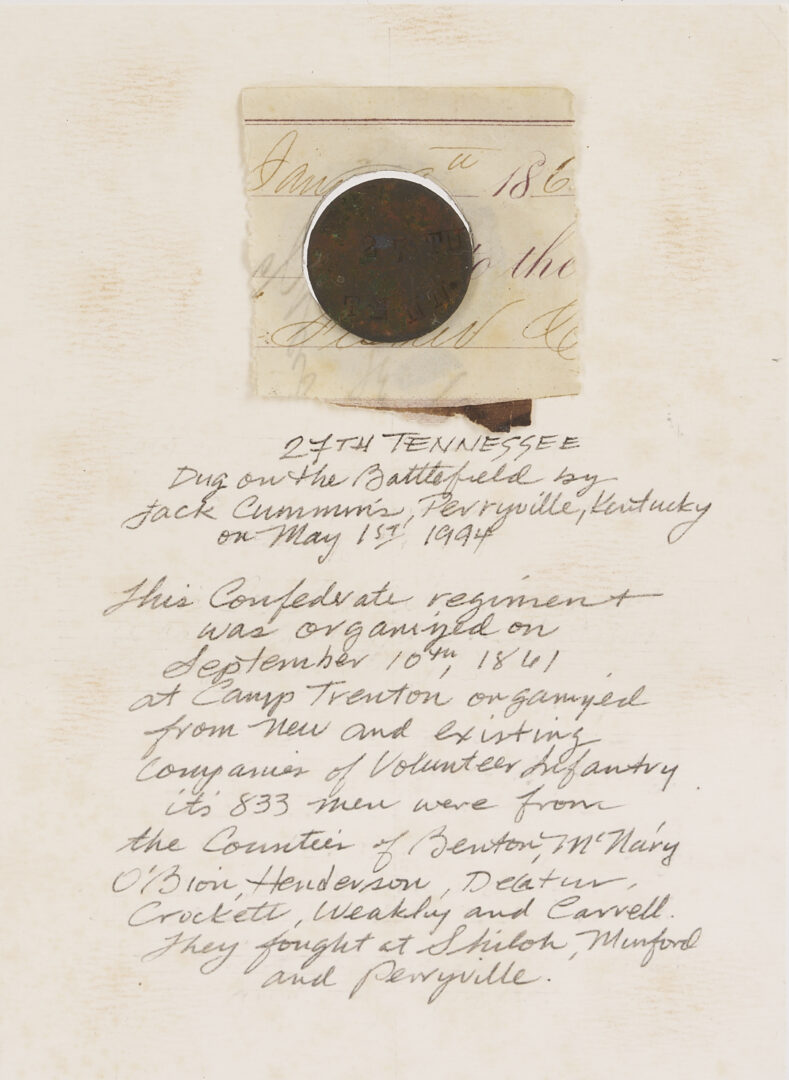 186
to the
27TH TENNESSEE
Dug on the Battlefield by
Jack Cummins, Perryville, Kentucky
on May 1ST, 1994
This Confederate regiment
was organized on
September 10th, 1861
at Camp Trenton organized
from new and existing
Companies of Volunteer Infantry
its 833 men were from
the Counties of Benton, McNary
O'Bion, Henderson, Decatur,
Crockett, Weakly and Carrell.
They fought at Shiloh, Munford
and Perryville.